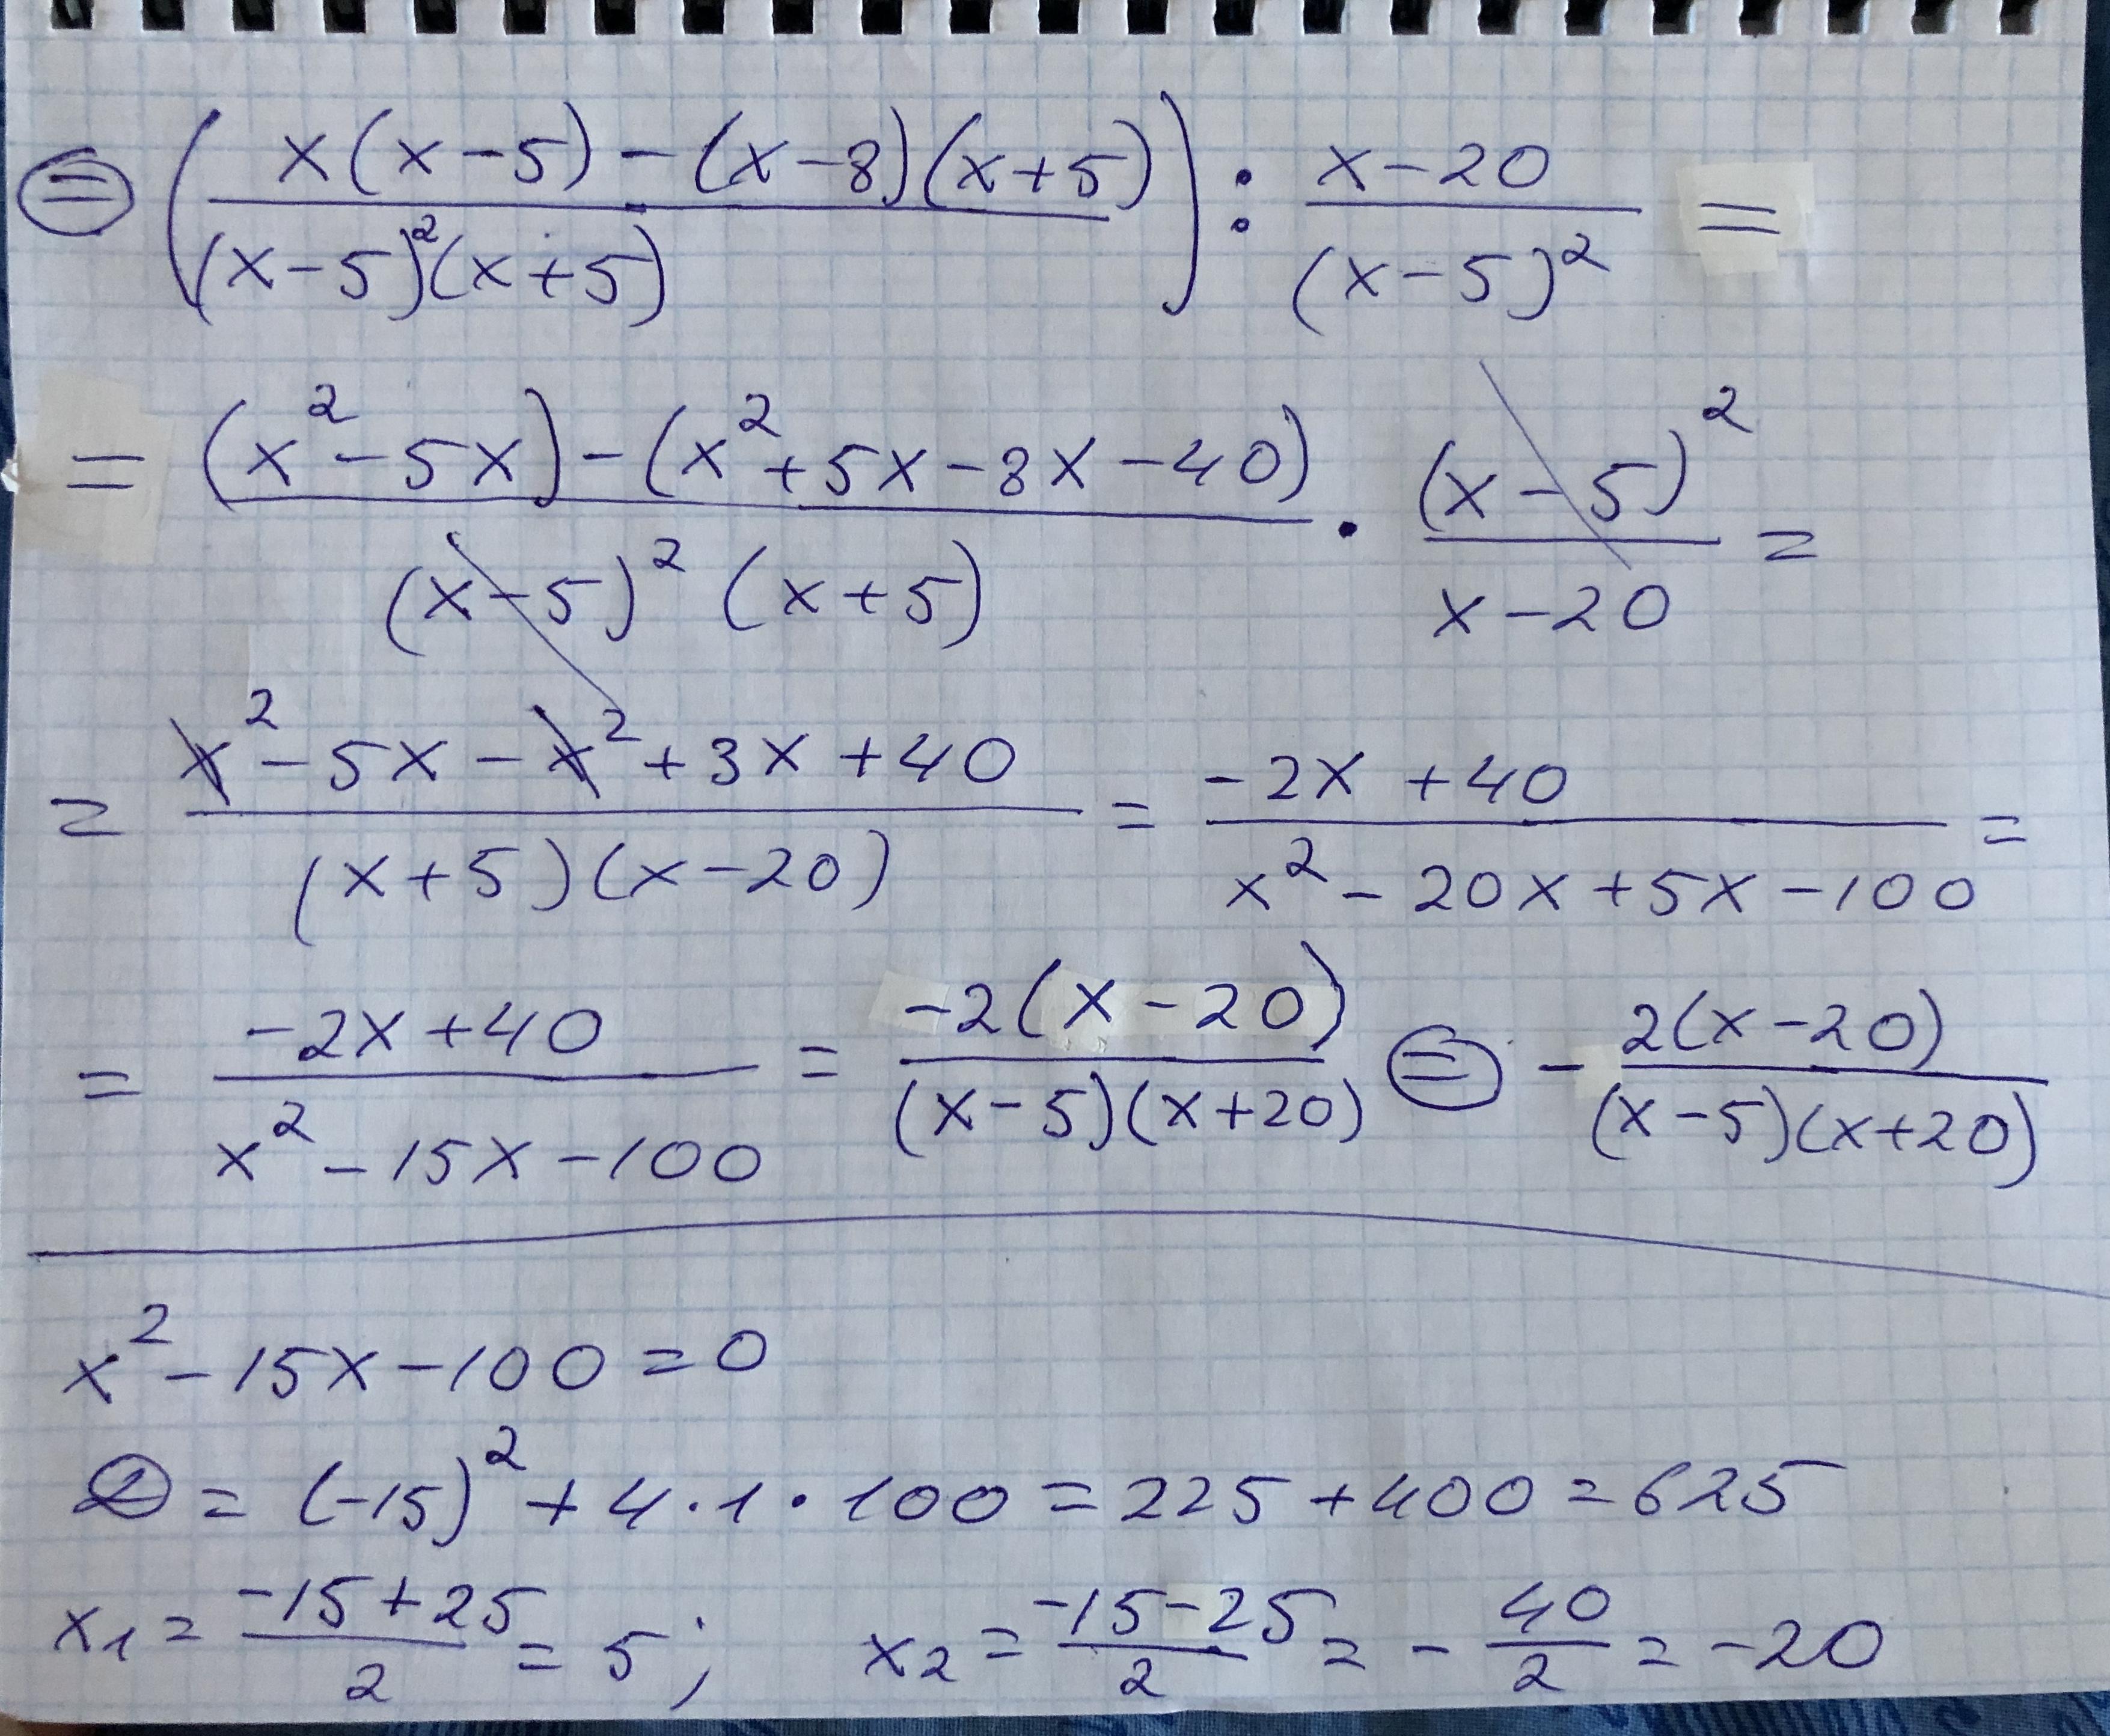 = ( (x(x-5) - (x-8)(x+5)) / ((x-5)²(x+5)) ) : (x-20) / (x-5)² =
= ((x² - 5x) - (x² + 5x - 8x - 40)) / ((x-5)² (x+5)) · (x-5)² / (x-20) =
= (x² - 5x - x² + 3x + 40) / ((x+5)(x-20)) = (-2x + 40) / (x² - 20x + 5x - 100) =
= (-2x + 40) / (x² - 15x - 100) = -2(x-20) / ((x-5)(x+20)) = - 2(x-20) / ((x-5)(x+20))
x² - 15x - 100 = 0
D = (-15)² + 4·1·100 = 225 + 400 = 625
x₁ = (-15+25) / 2 = 5; x₂ = (-15-25) / 2 = - 40/2 = -20